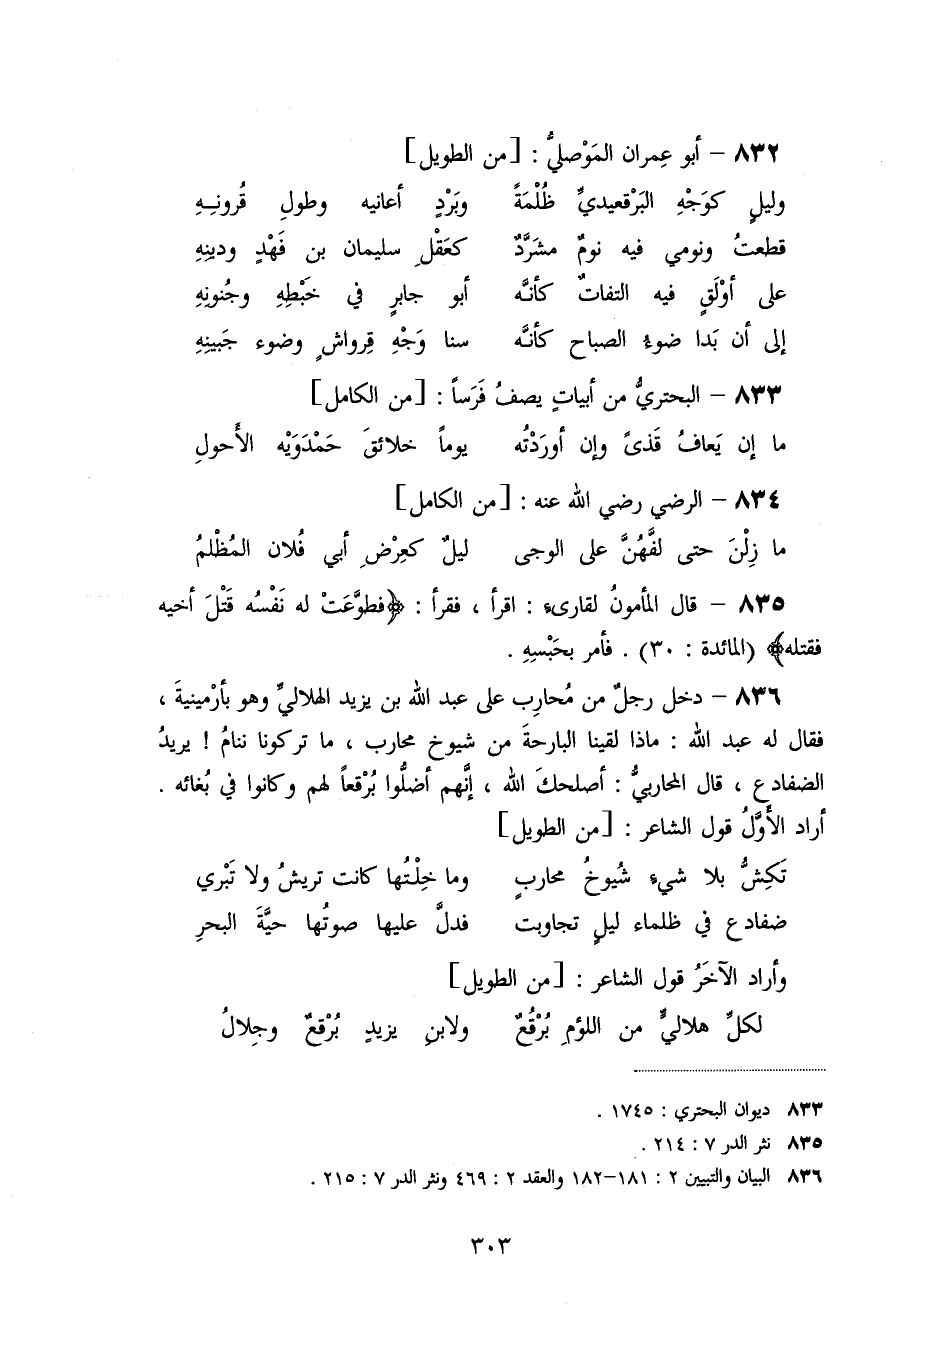 ٨٣٢ – أبو عِمران المَوْصليُّ : [من الطويل]
وليلٍ كوَجْهِ البَرْقعيديِّ ظُلْمَةً وبَرْدِ أعانيه وطولِ قُرونِهِ
قطعتُ ونومي فيه نومٌ مشرَّدٌ كعَقْلِ سليمان بن فَهْدٍ ودينِهِ
على أوْلَقٍ فيه التفاتٌ كأنَّه أبو جابرٍ في خَبْطِهِ وجُنونِهِ
إلى أن بَدا ضوءُ الصباح كأنَّه سنا وَجْهِ قِرواشٍ وضوء جَبينِهِ
٨٣٣ – البحتريُّ من أبياتٍ يصفُ فَرَساً : [من الكامل]
ما إن يَعافُ قَذىً وإن أورَدْتُه يوماً خلائقَ حَمْدَوَيْه الأَحولِ
٨٣٤ – الرضي رضي الله عنه : [من الكامل]
ما زِلْنَ حتى لفَّهُنَّ على الوجى ليلٌ كعِرْضِ أبي فُلان المُظْلمُ
٨٣٥ – قال المأمونُ لقارىء : اقرأ ، فقرأ : ﴿فطوَّعَتْ له نَفْسُه قَتْلَ أخيه
فقتله﴾ (المائدة : ٣٠) . فأمر بحَبْسِهِ .
٨٣٦ – دخل رجلٌ من مُحارِب على عبد الله بن يزيد الهلاليِّ وهو بأرْمينيةَ ،
فقال له عبد الله : ماذا لقينا البارحةَ من شيوخ محارب ، ما تركونا ننامُ ! يريدُ
الضفادع ، قال المحاربيُّ : أصلحكَ الله ، إنَّهم أضلُّوا بُرْقعاً لهم وكانوا في بُغائه .
أراد الأَوَّلُ قول الشاعر : [من الطويل]
تَكِشُّ بلا شيء شُيوخُ محاربٍ وما خِلْتُها كانت تريشُ ولا تَبْري
ضفادع في ظلماء ليلٍ تجاوبت فدلَّ عليها صوتُها حيَّةَ البحرِ
وأراد الآخَرُ قول الشاعر : [من الطويل]
لكلِّ هلاليٍّ من اللؤمِ بُرْقُعٌ ولابنِ يزيدٍ بُرْقعٌ وجِلالُ
٨٣٣ ديوان البحتري : ١٧٤٥ .
٨٣٥ نثر الدر ٧ : ٢١٤ .
٨٣٦ البيان والتبيين ٢ : ١٨١–١٨٢ والعقد ٢ : ٤٦٩ ونثر الدر ٧ : ٢١٥ .
٣٠٣